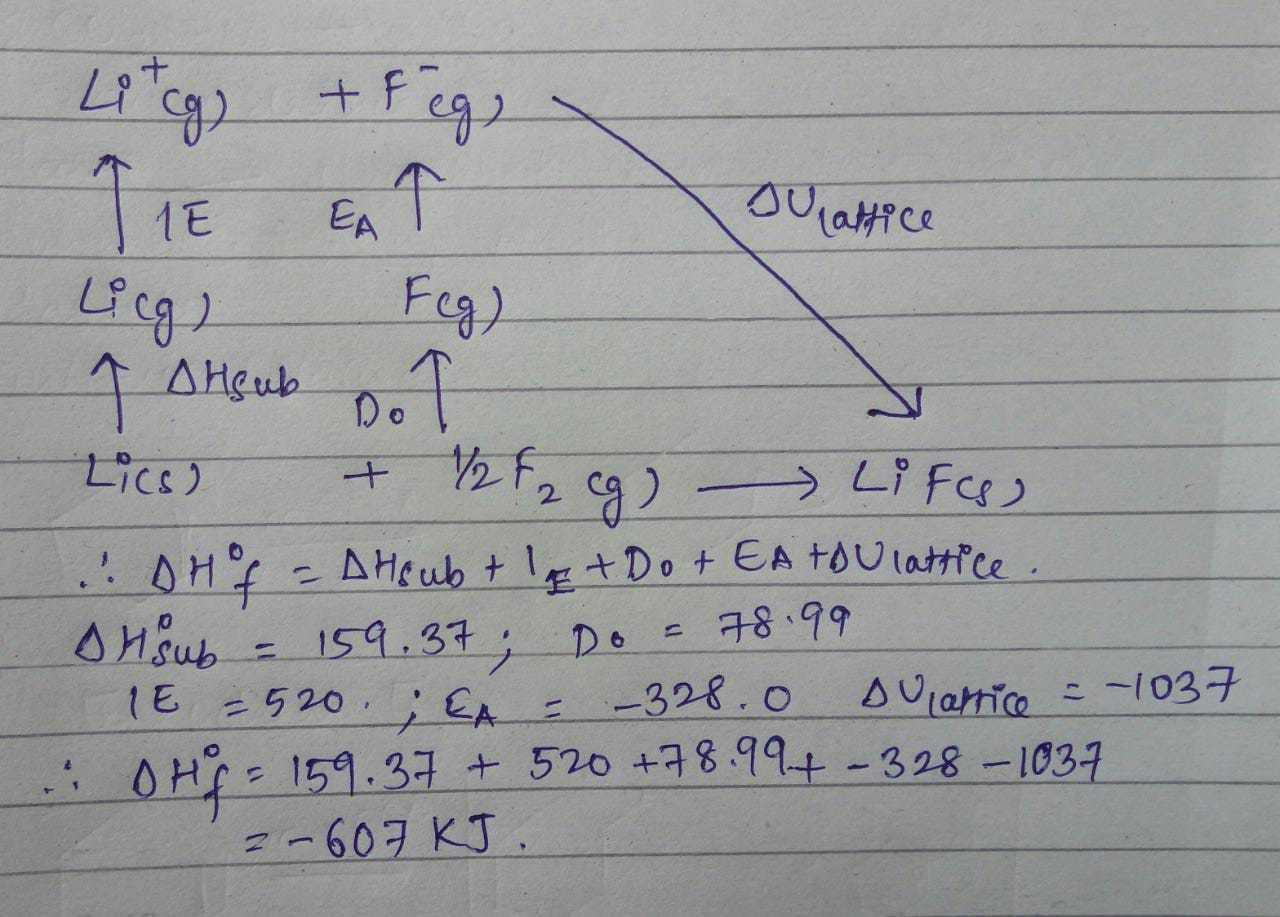 Li⁺(g) + F⁻(g)
↑ IE EA ↑ ΔU lattice
Li(g) F(g)
↑ ΔHsub Do ↑
Li(s) + ½ F₂ (g) → LiF(s)
∴ ΔH°f = ΔHsub + IE + Do + EA + ΔU lattice.
ΔH°sub = 159.37 ; Do = 78.99
IE = 520. ; EA = -328.0 ΔU lattice = -1037
∴ ΔH°f = 159.37 + 520 + 78.99 + - 328 - 1037
= - 607 KJ.